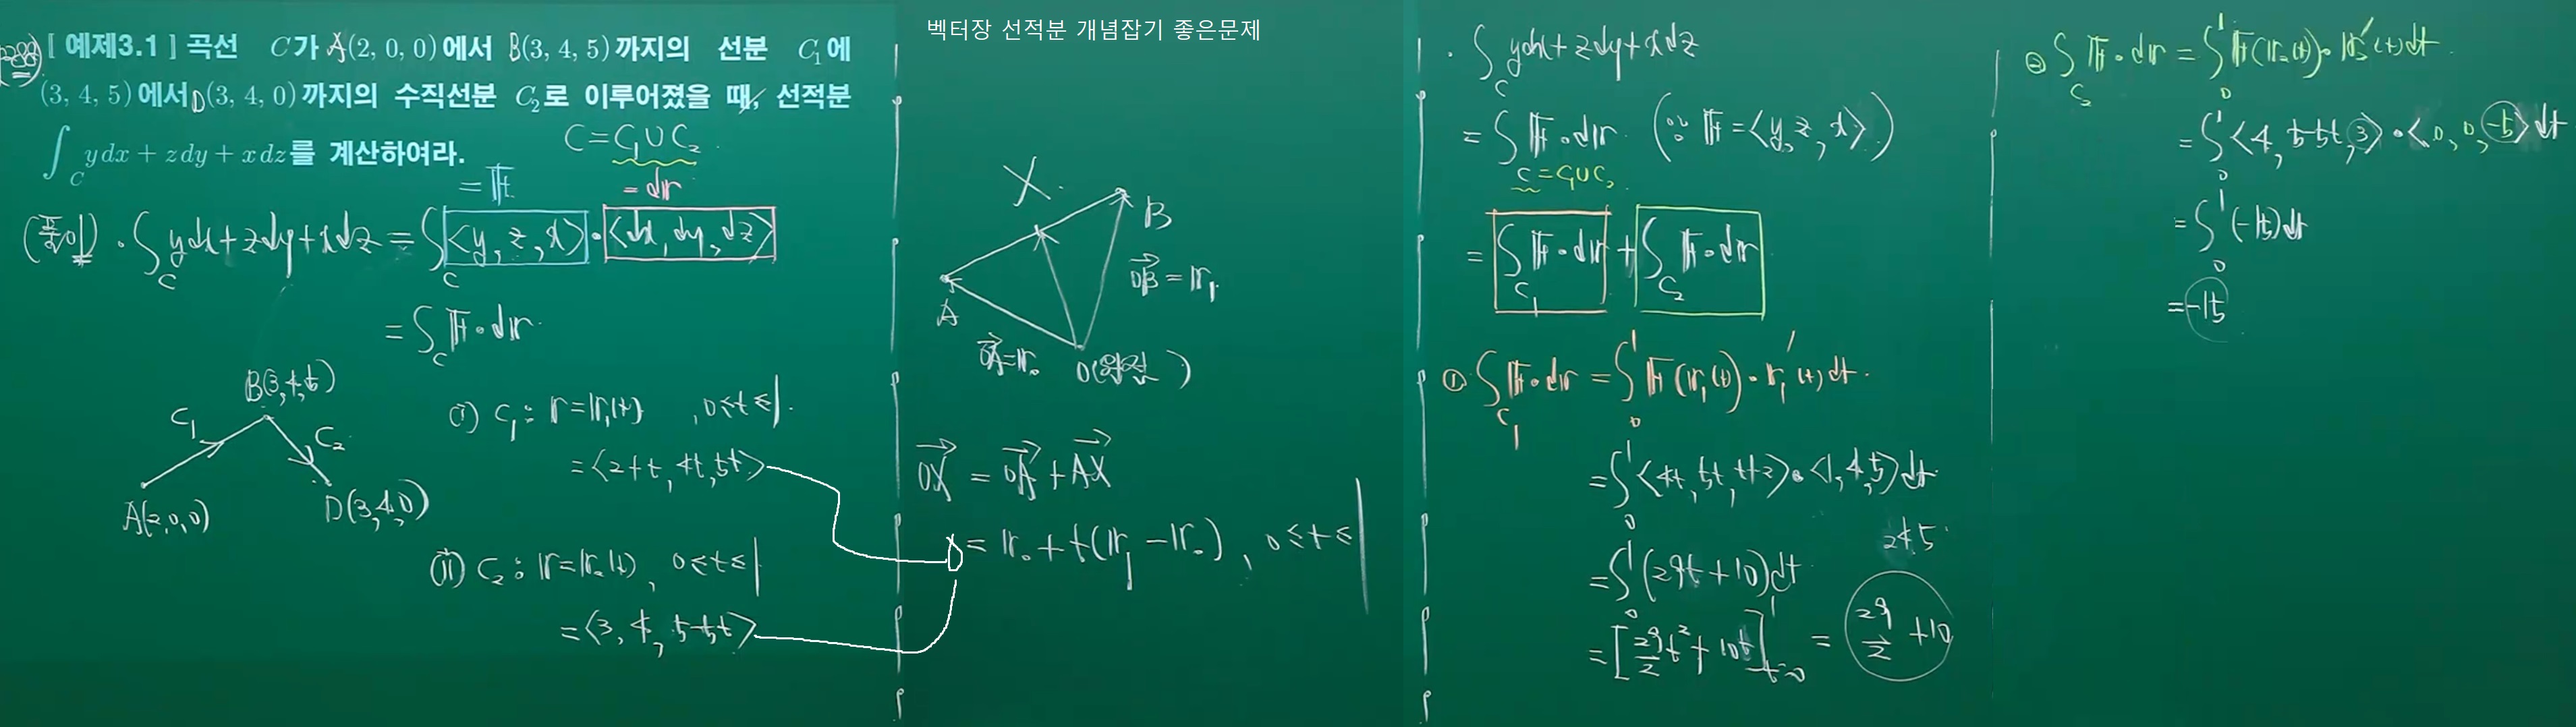 벡터장 선적분 개념잡기 좋은문제
[ 예제3.1 ] 곡선 C가 A(2, 0, 0)에서 B(3, 4, 5)까지의 선분 C₁에
(3, 4, 5)에서 D(3, 4, 0)까지의 수직선분 C₂로 이루어졌을 때, 선적분
∫_C ydx + zdy + xdz를 계산하여라.
C = C₁∪C₂
= 𝔽 = d𝕣
(풀이) · ∫_C ydx + zdy + xdz = ∫_C <y, z, x> · <dx, dy, dz>
= ∫_C 𝔽 · d𝕣
B(3,4,5)
C₁
C₂
A(2,0,0)
D(3,4,0)
(i) C₁ : 𝕣 = 𝕣₁(t) , 0≤t≤1.
= <2+t, 4t, 5t>
(ii) C₂ : 𝕣 = 𝕣₂(t) , 0≤t≤1
= <3, 4, 5-5t>
X
B
OB = 𝕣₁
A
OA = 𝕣₀
O(원점)
OX = OA + AX
= 𝕣₀ + t(𝕣₁ - 𝕣₀) , 0≤t≤1
· ∫_C ydx + zdy + xdz
= ∫_C 𝔽 · d𝕣 (∵ 𝔽 = <y, z, x>)
C = C₁∪C₂
= ∫_C₁ 𝔽 · d𝕣 + ∫_C₂ 𝔽 · d𝕣
① ∫_C₁ 𝔽 · d𝕣 = ∫₀¹ 𝔽(𝕣₁(t)) · 𝕣₁'(t)dt.
= ∫₀¹ <4t, 5t, t+2> · <1, 4, 5> dt
24.5
= ∫₀¹ (29t + 10)dt
= [29/2 t² + 10t]¹_t=0 = 29/2 + 10
② ∫_C₂ 𝔽 · d𝕣 = ∫₀¹ 𝔽(𝕣₂(t)) · 𝕣₂'(t)dt.
= ∫₀¹ <4, 5-5t, 3> · <0, 0, -5> dt
= ∫₀¹ (-15)dt
= -15